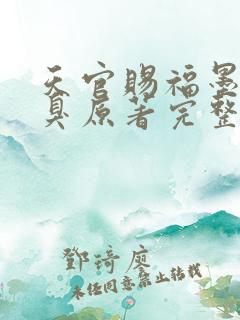 天官赐福墨
臭原著完整
邓琦廖
未经同意禁止转载